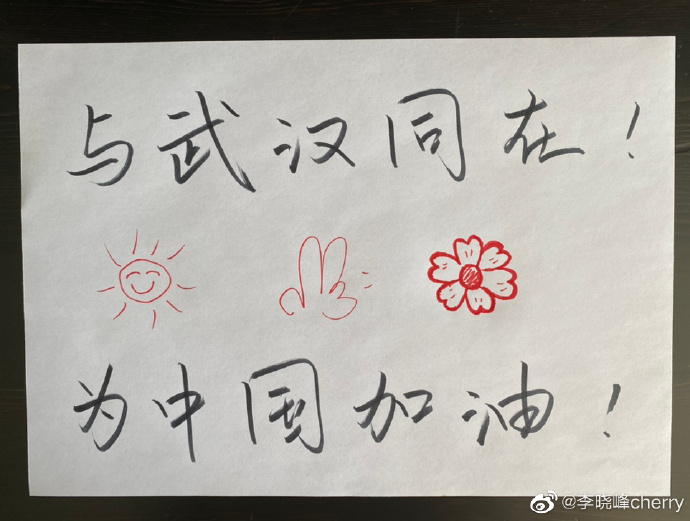 与武汉同在！
为中国加油！
@李晓峰cherry